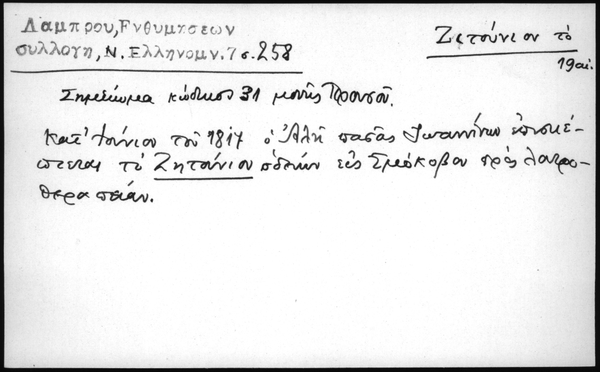 Λαμπρου, Ενθυμησεων
συλλογη, Ν. Ελληνομν. 7 σ. 258
Ζητούνιον τὸ
19 αἰ.
Σημείωμα κώδικος 31 μονῆς Προυσοῦ.
Κατ' Ἰούνιον τοῦ 1817 ὁ Ἀλῆ πασᾶς Ἰωαννίνων ἐπισκέ-
πτεται τὸ Ζητούνιον ὁδεύων εἰς Σμόκοβον πρὸς λουτρο-
θεραπείαν.